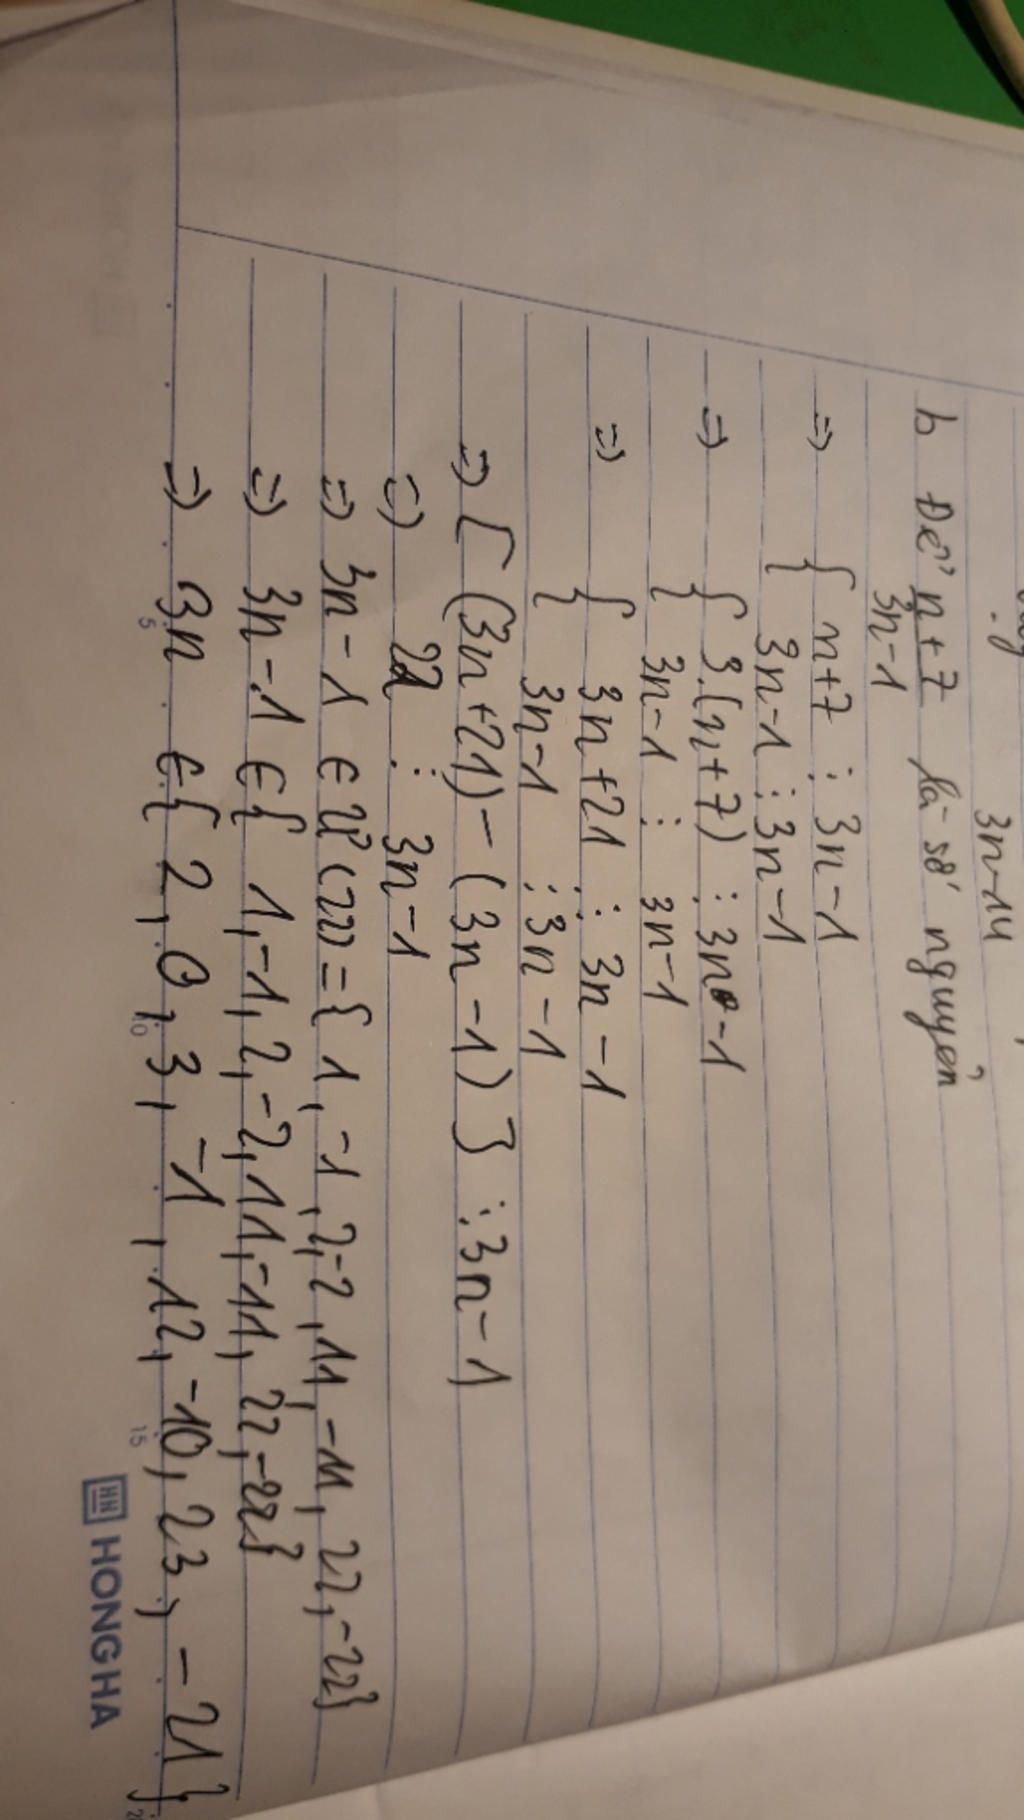 3n-14
b Để n+7 là số nguyên
3n-1
=> { n+7 ⋮ 3n-1
3n-1 ⋮ 3n-1
=> { 3.(n+7) ⋮ 3n-1
3n-1 ⋮ 3n-1
=> { 3n+21 ⋮ 3n-1
3n-1 ⋮ 3n-1
=> [(3n+21)-(3n-1)] ⋮ 3n-1
=> 22 ⋮ 3n-1
=> 3n-1 ∈ Ư(22)={1,-1,2,-2,11,-11,22,-22}
=> 3n-1 ∈{1,-1,2,-2,11,-11,22,-22}
=> 3n ∈{2,0,3,-1,12,-10,23,-21}
5 10 15 20
HONG HA